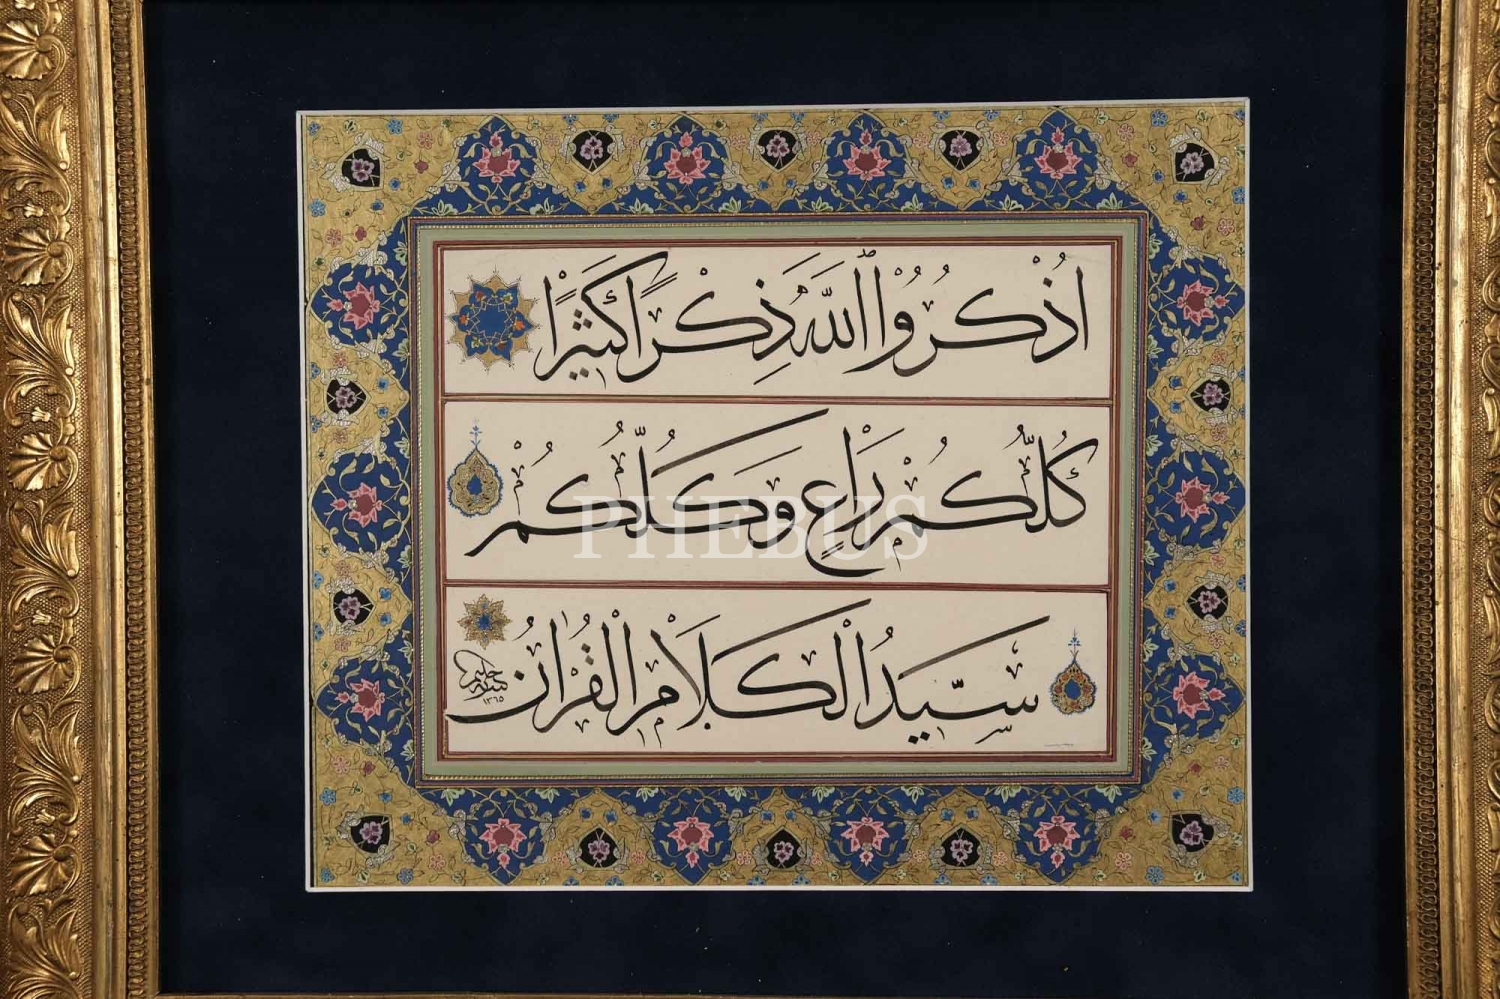 اُذْكُرُوا اللّٰهَ ذِكْرًا كَثِيْرًا
كُلُّكُمْ رَاعٍ وَكُلُّكُمْ
سَيِّدُ الْكَلَامِ الْقُرْاٰنُ
حليم
١٣٦٥
PHEBUS